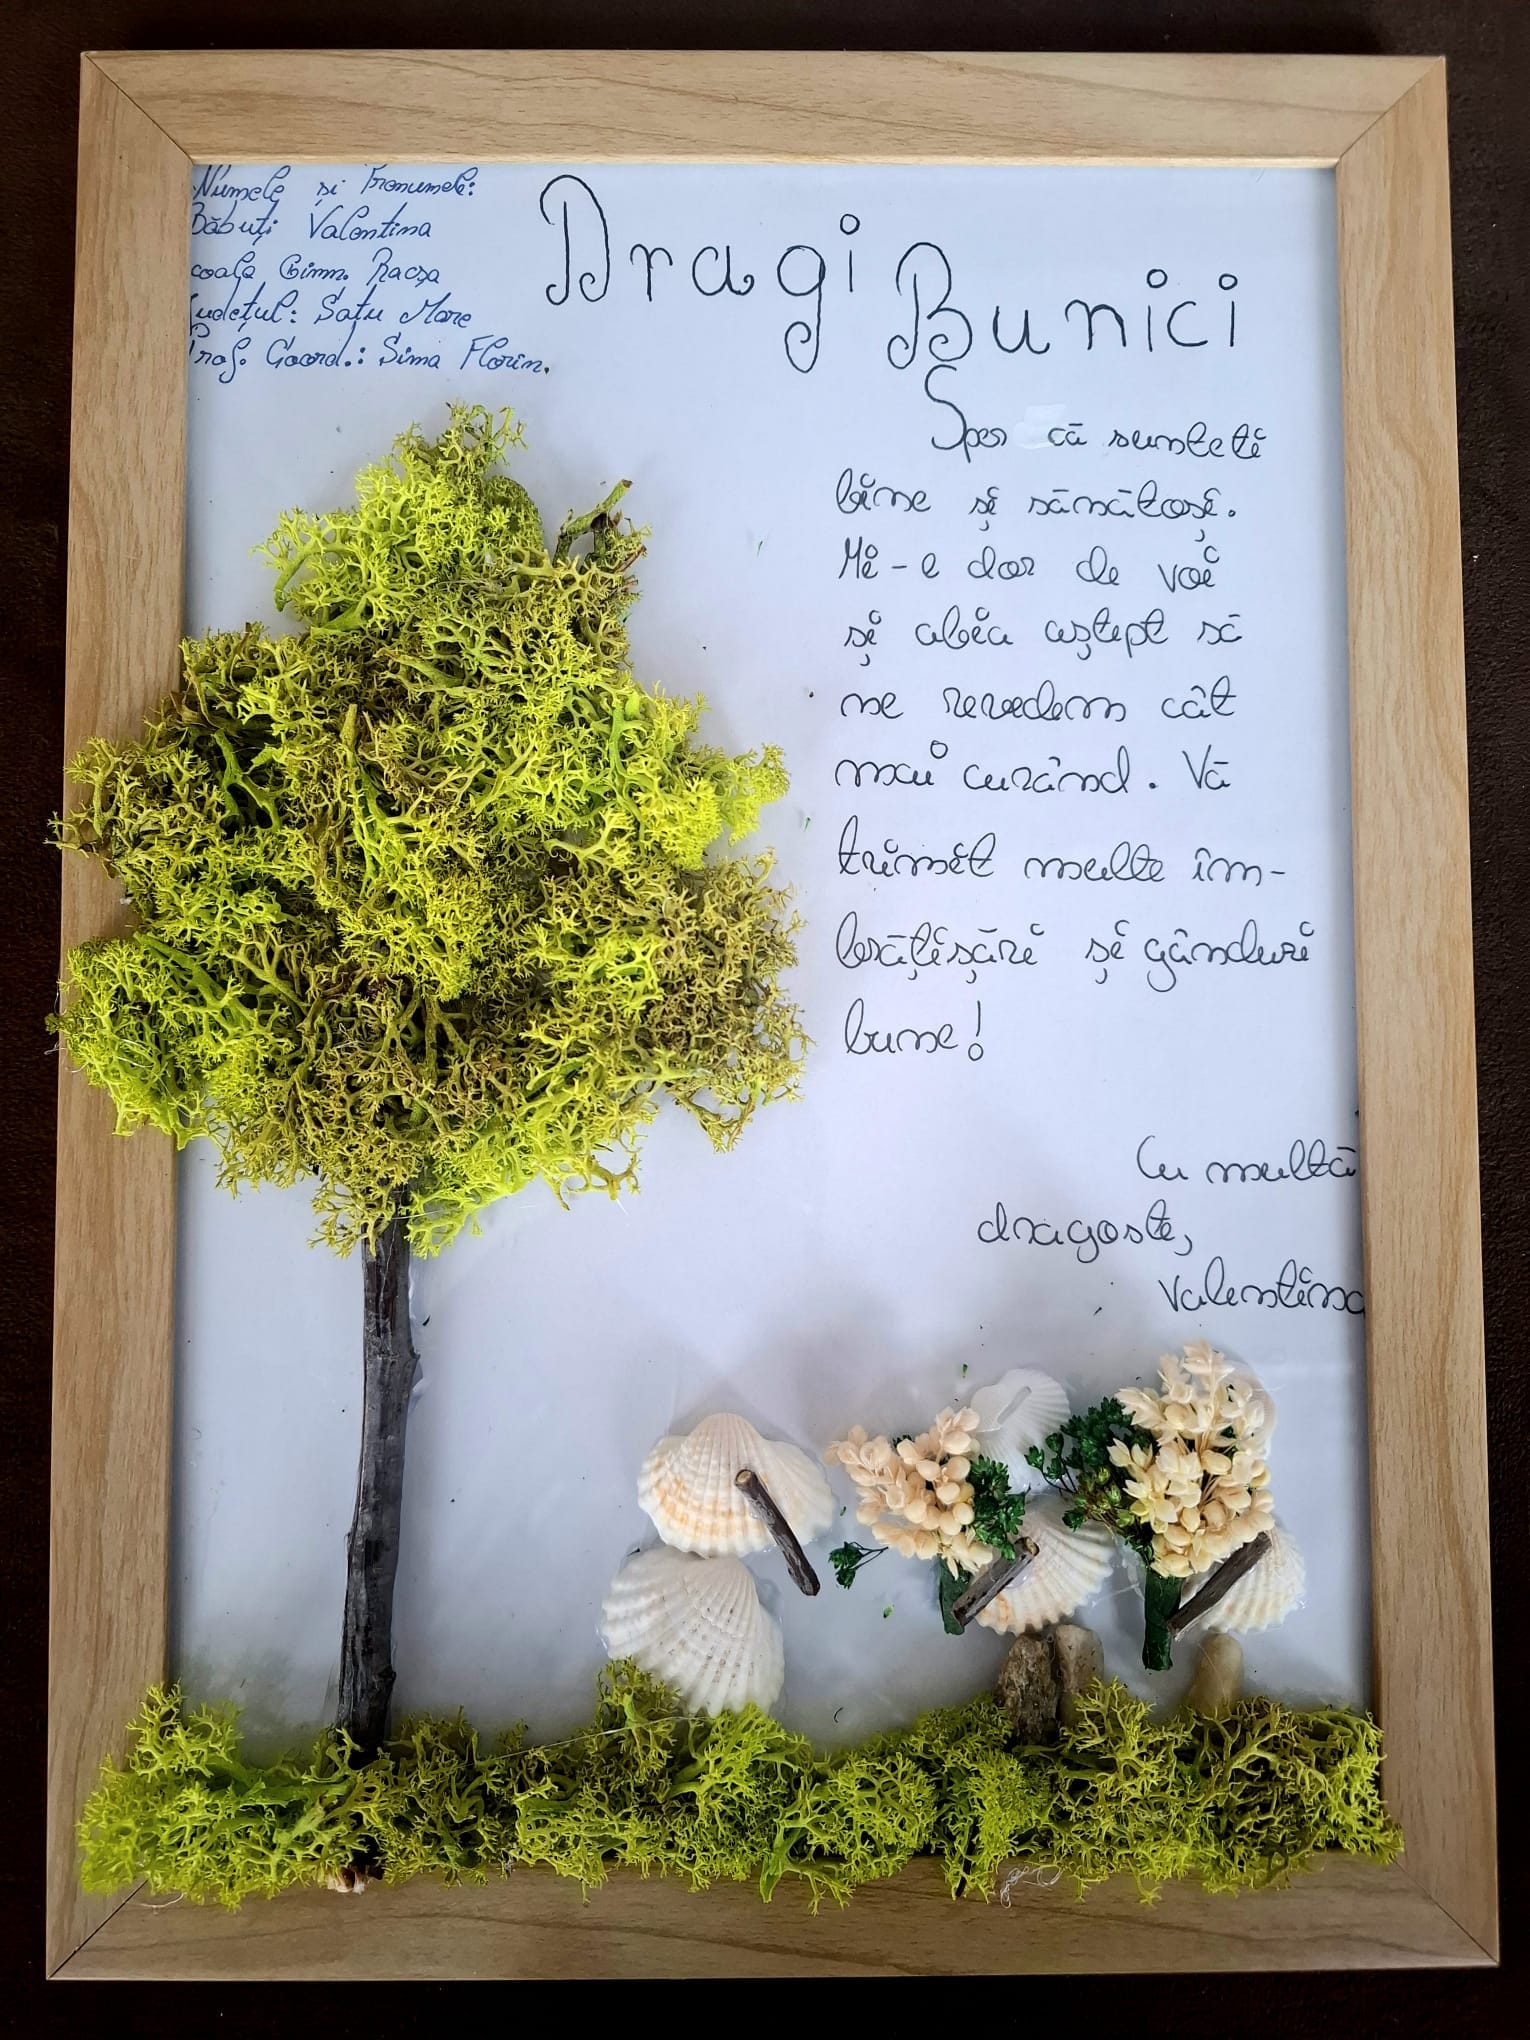 Numele și Prenumele:
Băbuți Valentina
coala Gimn. Racșa
udețul: Satu Mare
Prof. Coord.: Sima Florin.
Dragi
Bunici
Sper că sunteti
bine și sănătoși.
Mi-e dor de voi
și abia aștept să
ne revedem cât
mai curând. Vă
trimit multe îm-
brățișări și gânduri
bune!
Cu multă
dragoste,
Valentina